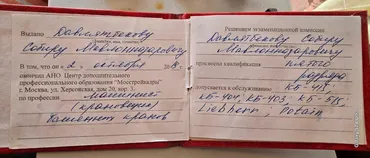 Выдано Давлятбекову
Сохиру Мавлоназаровичу
В том, что он « 2 » октября
окончил АНО Центр дополнительного
профессионального образования "Мосстройкадры"
г. Москва, ул. Херсонская, дом 20, кор. 3.
по профессии машинист
(крановщик)
башенных кранов
Решением экзаменационной комиссии
Давлятбекову Сохиру
Мавлоназаровичу
присвоена квалификация пятого
разряда
допускается к обслуживанию КБ-415,
КБ-404, КБ-403, КБ-515,
Liebherr, Potain